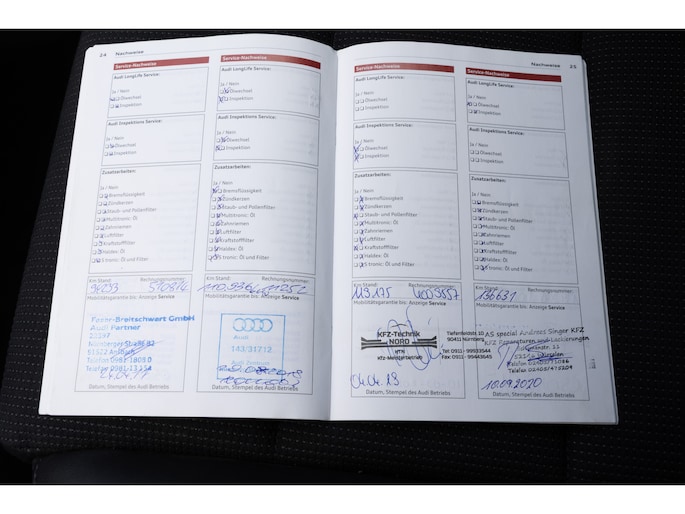 24 Nachweise
Service-Nachweise
Audi LongLife Service:
Ja / Nein
Ölwechsel
Inspektion
Audi Inspektions Service:
Ja / Nein
Ölwechsel
Inspektion
Zusatzarbeiten:
Ja / Nein
Bremsflüssigkeit
Zündkerzen
Staub- und Pollenfilter
Multitronic: Öl
Zahnriemen
Luftfilter
Kraftstofffilter
Haldex: Öl
S tronic: Öl und Filter
Km Stand: Rechnungsnummer:
Mobilitätsgarantie bis: Anzeige Service
Feser-Breitschwart GmbH
Audi Partner
Nürnberger Straße
Ansbach
Telefon
Telefax 0981-
Datum, Stempel des Audi Betriebs
Service-Nachweise
Audi LongLife Service:
Ja / Nein
Ölwechsel
Inspektion
Audi Inspektions Service:
Ja / Nein
Ölwechsel
Inspektion
Zusatzarbeiten:
Ja / Nein
Bremsflüssigkeit
Zündkerzen
Staub- und Pollenfilter
Multitronic: Öl
Zahnriemen
Luftfilter
Kraftstofffilter
Haldex: Öl
S tronic: Öl und Filter
Km Stand: Rechnungsnummer:
Mobilitätsgarantie bis: Anzeige Service
Audi
143/31712
Datum, Stempel des Audi Betriebs
Nachweise 25
Service-Nachweise
Audi LongLife Service:
Ja / Nein
Ölwechsel
Inspektion
Audi Inspektions Service:
Ja / Nein
Ölwechsel
Inspektion
Zusatzarbeiten:
Ja / Nein
Bremsflüssigkeit
Zündkerzen
Staub- und Pollenfilter
Multitronic: Öl
Zahnriemen
Luftfilter
Kraftstofffilter
Haldex: Öl
S tronic: Öl und Filter
Km Stand: Rechnungsnummer:
119.175
Mobilitätsgarantie bis: Anzeige Service
KFZ-Technik
NORD
HTN
Kfz-Meisterbetrieb
90411 Nürnberg
Tel: 0911 - 99933544
Fax: 0911 - 99443645
04.04.19
Datum, Stempel des Audi Betriebs
Service-Nachweise
Audi LongLife Service:
Ja / Nein
Ölwechsel
Inspektion
Audi Inspektions Service:
Ja / Nein
Ölwechsel
Inspektion
Zusatzarbeiten:
Ja / Nein
Bremsflüssigkeit
Zündkerzen
Staub- und Pollenfilter
Multitronic: Öl
Zahnriemen
Luftfilter
Kraftstofffilter
Haldex: Öl
S tronic: Öl und Filter
Km Stand: Rechnungsnummer:
136631
Mobilitätsgarantie bis: Anzeige Service
AS special Andreas Singer KFZ
KFZ Reparaturen und Lackierungen
Würselen
Telefon
Telefax 02405/475209
10.09.2020
Datum, Stempel des Audi Betriebs